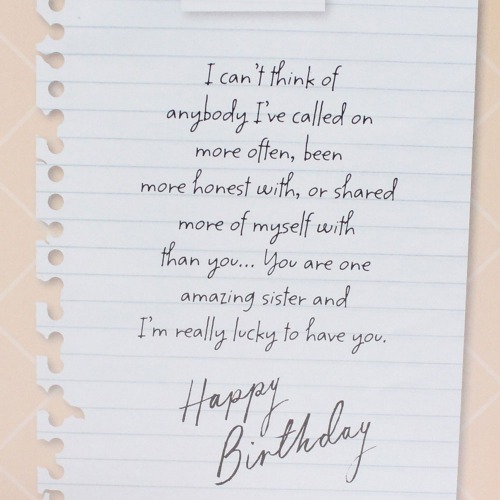 I can't think of
anybody I've called on
more often, been
more honest with, or shared
more of myself with
than you... You are one
amazing sister and
I'm really lucky to have you.
Happy
Birthday